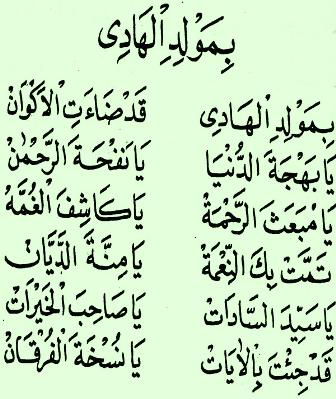 بِمَوْلِدِ اْلهَادِى
بِمَوْلِدِ اْلهَادِى قَدْ ضَاءَتِ اْلاَكْوَانْ
يَا بَهْجَةَ الدُّنْيَا يَا نَفْحَةَ الرَّحْمٰنْ
يَا مَبْعَثَ الرَّحْمَةْ يَا كَاشِفَ الْغُمَّهْ
تَمَّتْ بِكَ النِّعْمَةْ يَا مِنَّةَ الدَّيَّانْ
يَا سَيِّدَ السَّادَاتْ يَا صَاحِبَ الْخَيْرَاتْ
قَدْ جِئْتَ بِاْلاٰيَاتْ يَا نُسْخَةَ الْفُرْقَانْ